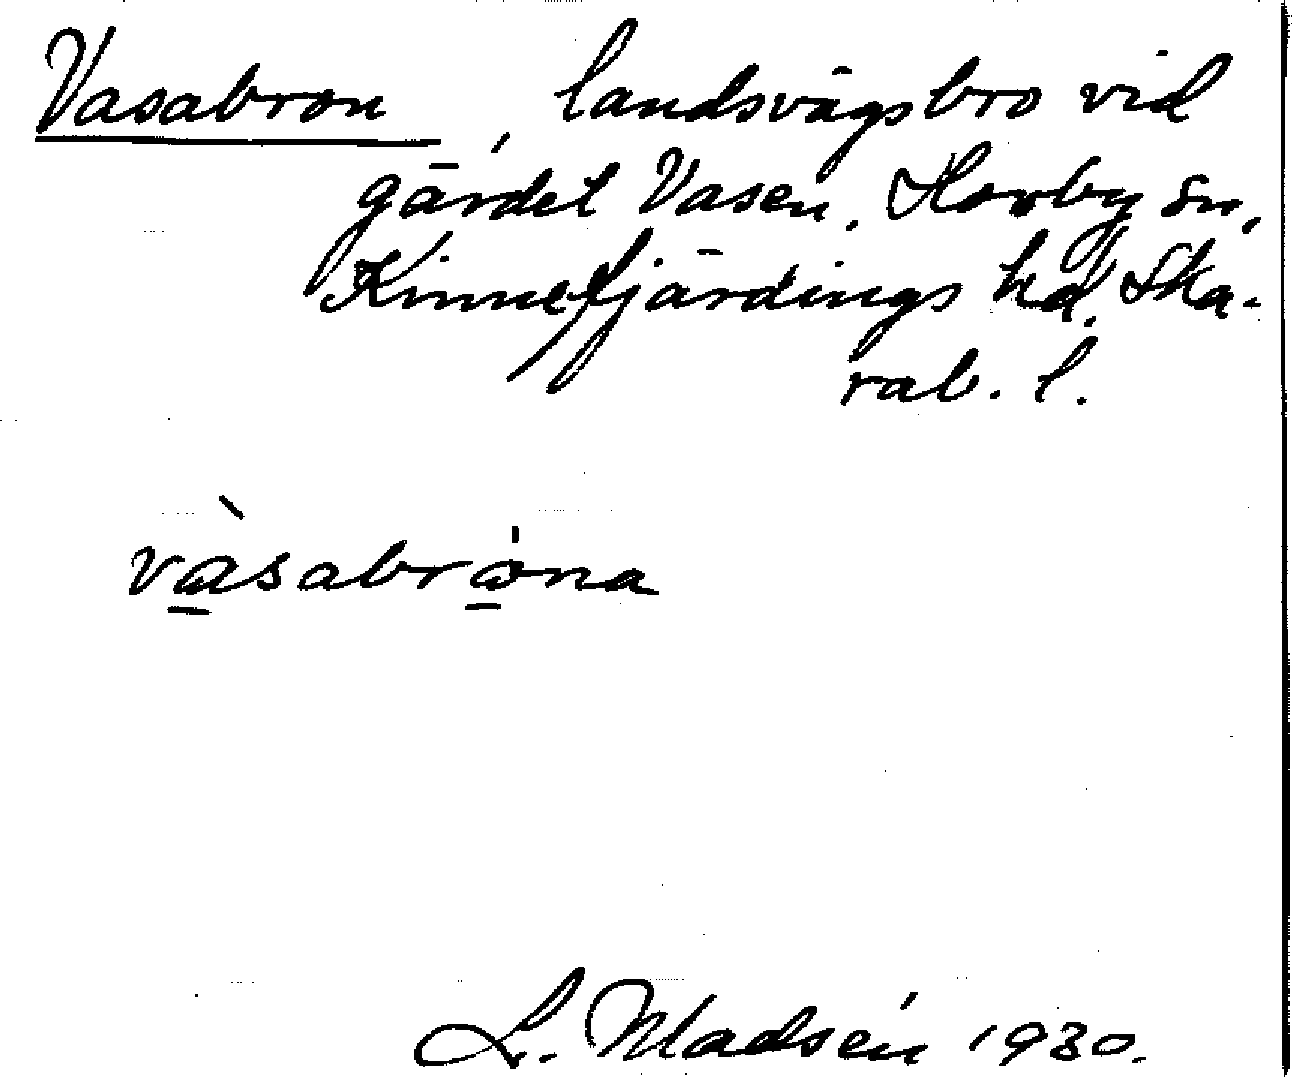 Vasabron, landsvägsbro vid
gärdet Vasen, Hovby sn,
Kinnefjärdings hd, Ska-
rab. l.
vàsabrona
L. Madsén 1930.